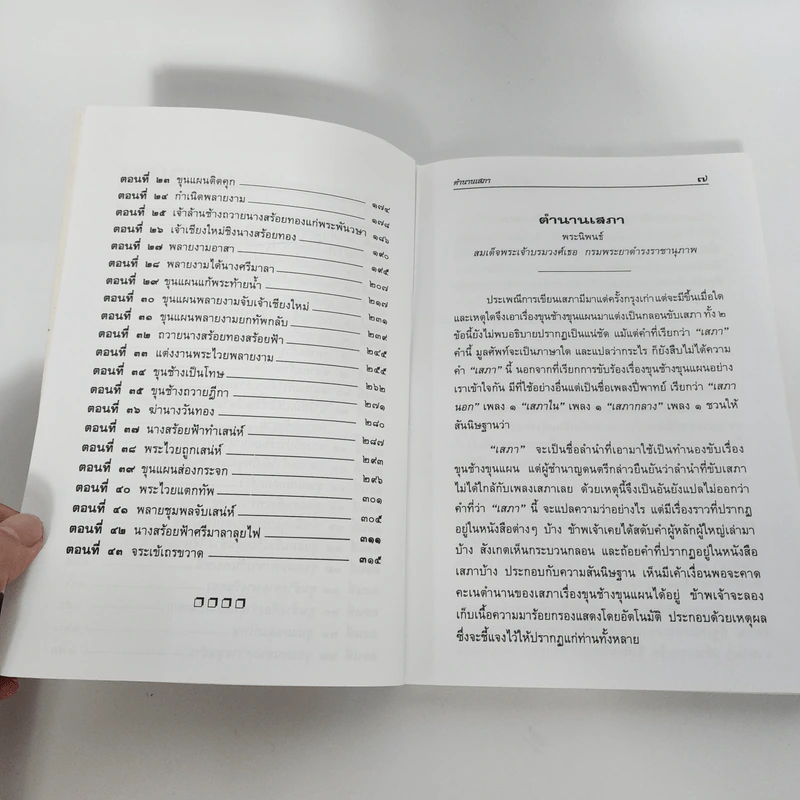 ตอนที่ ๒๓ ขุนแผนติดคุก ๑๗๔
ตอนที่ ๒๔ กำเนิดพลายงาม ๑๗๘
ตอนที่ ๒๕ เจ้าล้านช้างถวายนางสร้อยทองแก่พระพันวษา ๑๘๖
ตอนที่ ๒๖ เจ้าเชียงใหม่ชิงนางสร้อยทอง ๑๙๐
ตอนที่ ๒๗ พลายงามอาสา ๑๙๕
ตอนที่ ๒๘ พลายงามได้นางศรีมาลา ๒๐๗
ตอนที่ ๒๙ ขุนแผนแก้พระท้ายน้ำ ๒๑๗
ตอนที่ ๓๐ ขุนแผนพลายงามจับเจ้าเชียงใหม่ ๒๓๑
ตอนที่ ๓๑ ขุนแผนพลายงามยกทัพกลับ ๒๓๙
ตอนที่ ๓๒ ถวายนางสร้อยทองสร้อยฟ้า ๒๔๕
ตอนที่ ๓๓ แต่งงานพระไวยพลายงาม ๒๕๕
ตอนที่ ๓๔ ขุนช้างเป็นโทษ ๒๖๒
ตอนที่ ๓๕ ขุนช้างถวายฎีกา ๒๗๑
ตอนที่ ๓๖ ฆ่านางวันทอง ๒๘๐
ตอนที่ ๓๗ นางสร้อยฟ้าทำเสน่ห์ ๒๘๗
ตอนที่ ๓๘ พระไวยถูกเสน่ห์ ๒๙๓
ตอนที่ ๓๙ ขุนแผนส่องกระจก ๒๙๖
ตอนที่ ๔๐ พระไวยแตกทัพ ๓๐๑
ตอนที่ ๔๑ พลายชุมพลจับเสน่ห์ ๓๐๕
ตอนที่ ๔๒ นางสร้อยฟ้าศรีมาลาลุยไฟ ๓๑๑
ตอนที่ ๔๓ จระเข้เถรขวาด ๓๑๕
ตำนานเสภา ๗
ตำนานเสภา
พระนิพนธ์
สมเด็จพระเจ้าบรมวงศ์เธอ กรมพระยาดำรงราชานุภาพ
ประเพณีการเขียนเสภามีมาแต่ครั้งกรุงเก่า แต่จะมีขึ้นเมื่อใด
และเหตุใดจึงเอาเรื่องขุนช้างขุนแผนมาแต่งเป็นกลอนขับเสภา ทั้ง ๒
ข้อนี้ยังไม่พบอธิบายปรากฏเป็นแน่ชัด แม้แต่คำที่เรียกว่า “เสภา”
คำนี้ มูลศัพท์จะเป็นภาษาใด และแปลว่ากระไร ก็ยังสืบไม่ได้ความ
คำ “เสภา” นี้ นอกจากที่เรียกการขับร้องเรื่องขุนช้างขุนแผนอย่าง
เราเข้าใจกัน มีที่ใช้อย่างอื่นแต่เป็นชื่อเพลงปี่พาทย์ เรียกว่า “เสภา
นอก” เพลง ๑ “เสภาใน” เพลง ๑ “เสภากลาง” เพลง ๑ ชวนให้
สันนิษฐานว่า
“เสภา” จะเป็นชื่อลำนำที่เอามาใช้เป็นทำนองขับเรื่อง
ขุนช้างขุนแผน แต่ผู้ชำนาญดนตรีกล่าวยืนยันว่าลำนำที่ขับเสภา
ไม่ได้ใกล้กับเพลงเสภาเลย ด้วยเหตุนี้จึงเป็นอันยังแปลไม่ออกว่า
คำที่ว่า “เสภา” นี้ จะแปลความว่าอย่างไร แต่มีเรื่องราวที่ปรากฏ
อยู่ในหนังสือต่างๆ บ้าง ข้าพเจ้าเคยได้สดับคำผู้หลักผู้ใหญ่เล่ามา
บ้าง สังเกตเห็นกระบวนกลอน และถ้อยคำที่ปรากฏอยู่ในหนังสือ
เสภาบ้าง ประกอบกับความสันนิษฐาน เห็นมีเค้าเงื่อนพอจะคาด
คะเนตำนานของเสภาเรื่องขุนช้างขุนแผนได้อยู่ ข้าพเจ้าจะลอง
เก็บเนื้อความมาร้อยกรองแสดงโดยอัตโนมัติ ประกอบด้วยเหตุผล
ซึ่งจะชี้แจงไว้ให้ปรากฏแก่ท่านทั้งหลาย